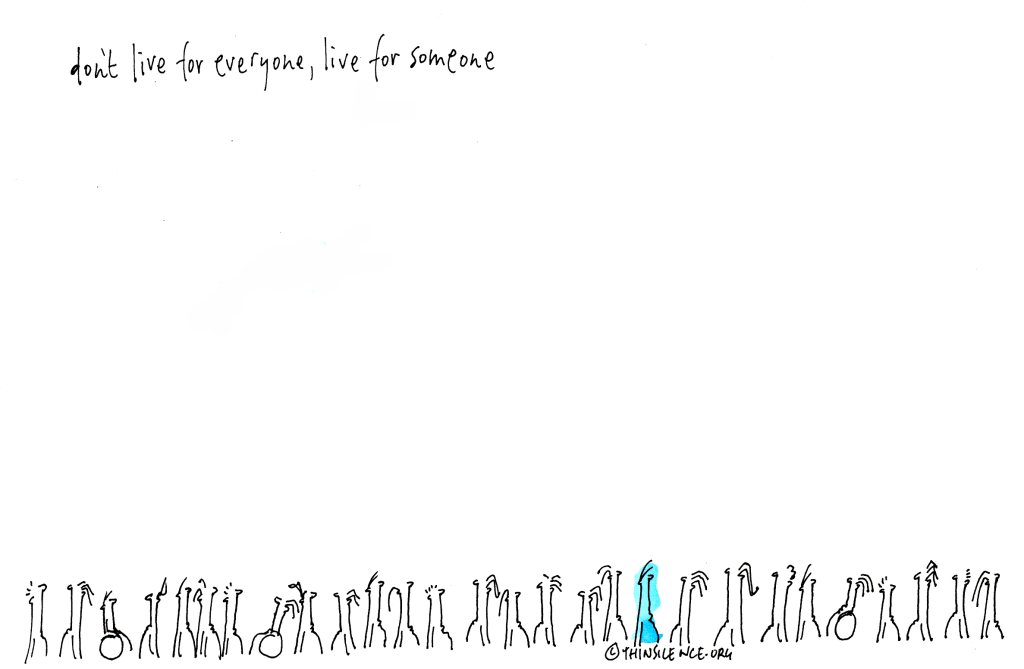 don't live for everyone, live for someone
©THINSILENCE.ORG